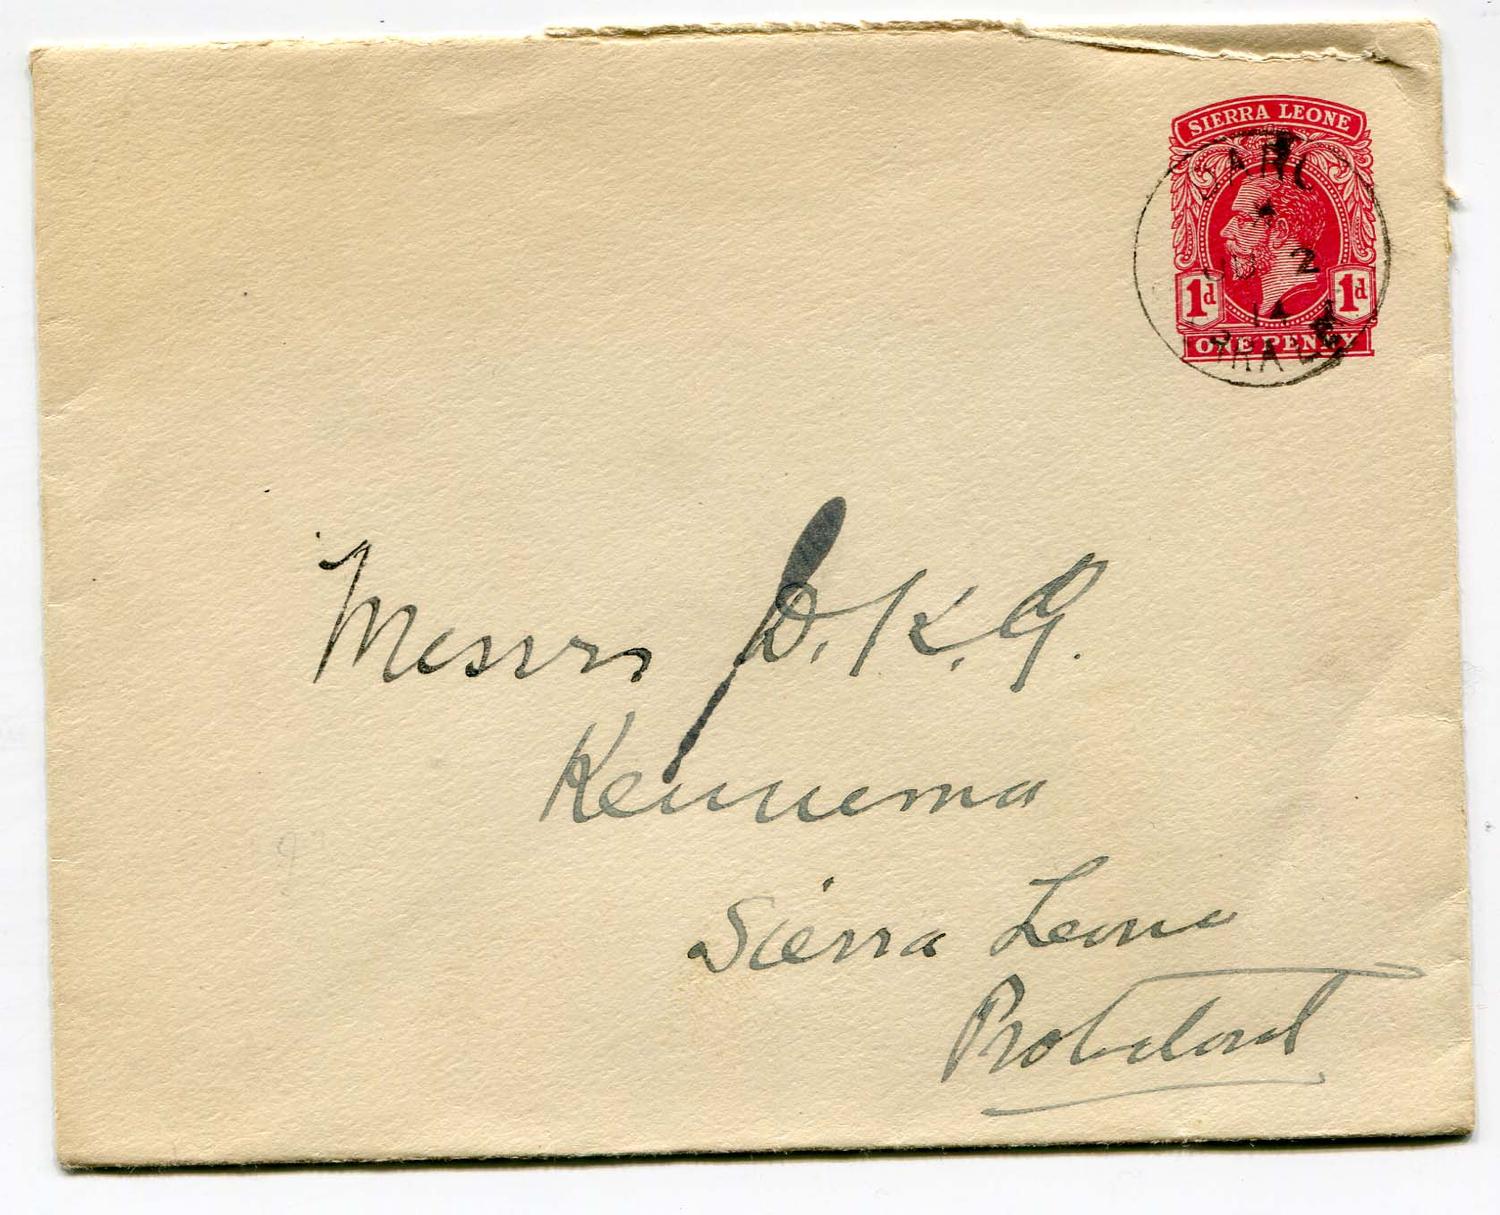 SIERRA LEONE
1d 1d
ONE PENNY
2
14
Messrs D. K. G.
Kennema
Sierra Leone
Protectorate